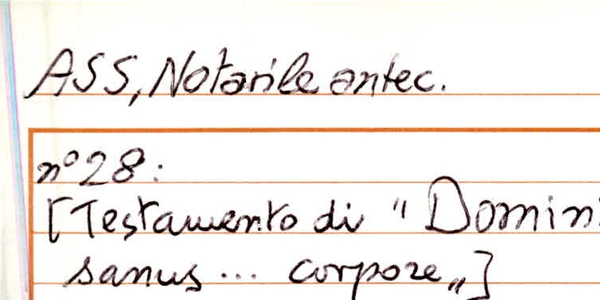 ASS, Notarile antec.
n° 28:
[Testamento di " Domin
sanus ... corpore„]